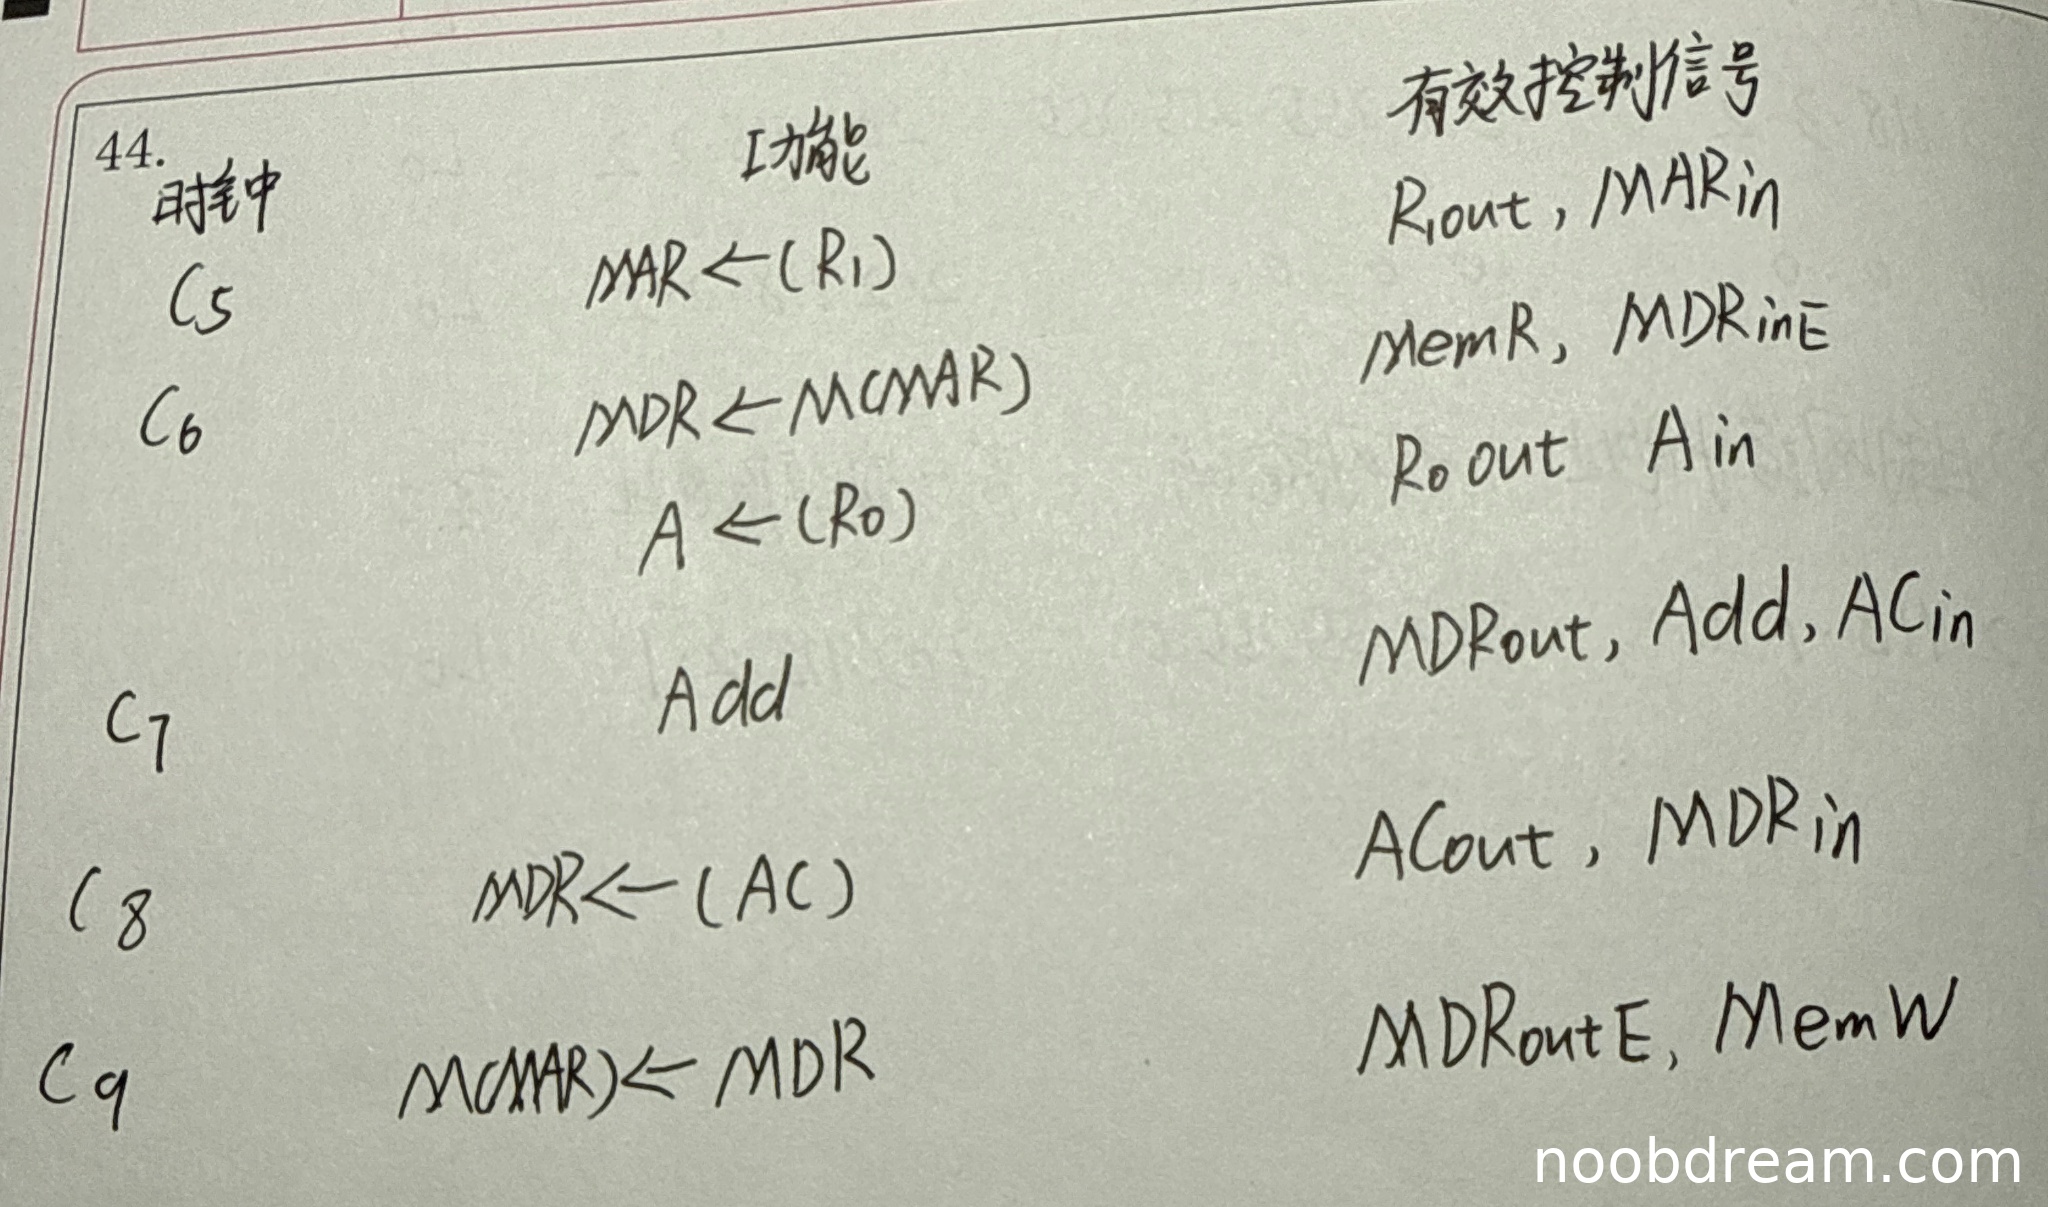 44.
时钟 功能 有效控制信号
C5 MAR←(R1) R1out, MARin
C6 MDR←M(MAR) MemR, MDRinE
A←(R0) R0out Ain
C7 Add MDRout, Add, ACin
C8 MDR←(AC) ACout, MDRin
C9 M(MAR)←MDR MDRoutE, MemW
noobdream.com